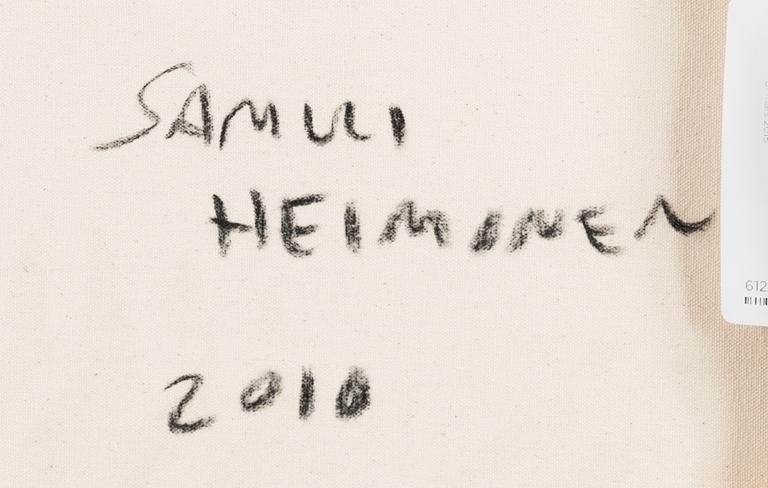 SAMULI
HEIMONEN
2010
612